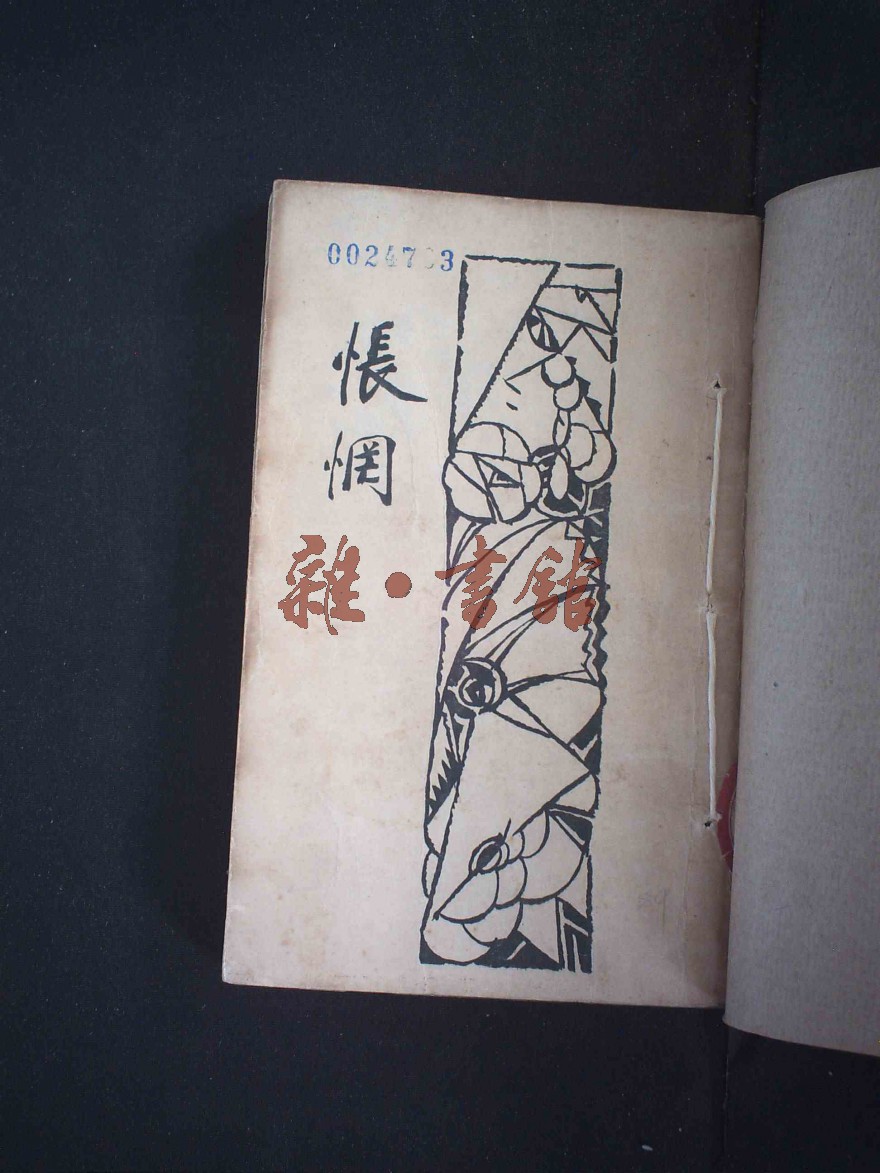 0024703
悵
惘
雜·書舘